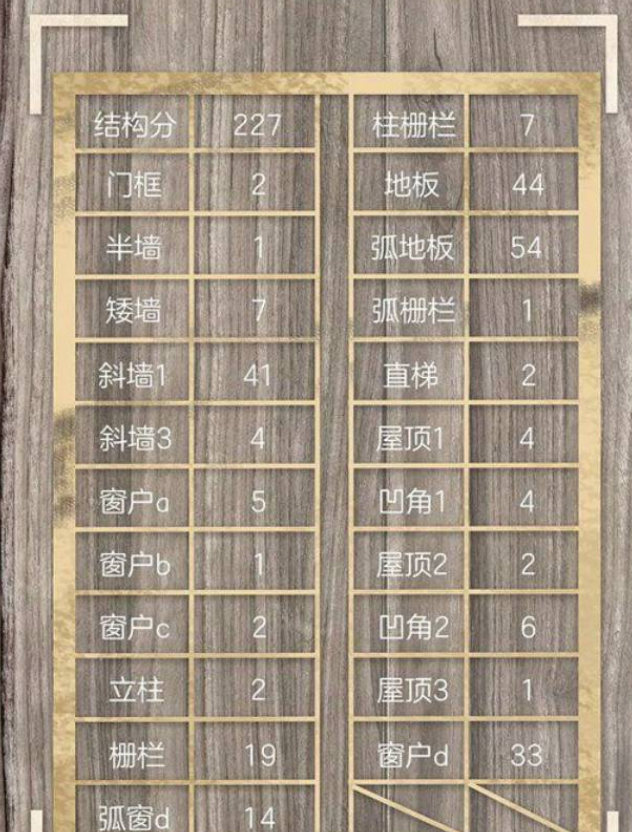 结构分 227 柱栅栏 7
门框 2 地板 44
半墙 1 弧地板 54
矮墙 7 弧栅栏 1
斜墙1 41 直梯 2
斜墙3 4 屋顶1 4
窗户a 5 凹角1 4
窗户b 1 屋顶2 2
窗户c 2 凹角2 6
立柱 2 屋顶3 1
栅栏 19 窗户d 33
弧窗d 14